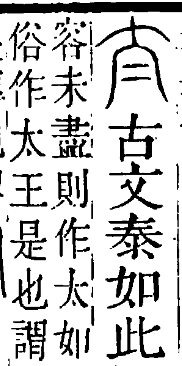 夳古文泰如此
容未盡則作太如
俗作太王是也謂